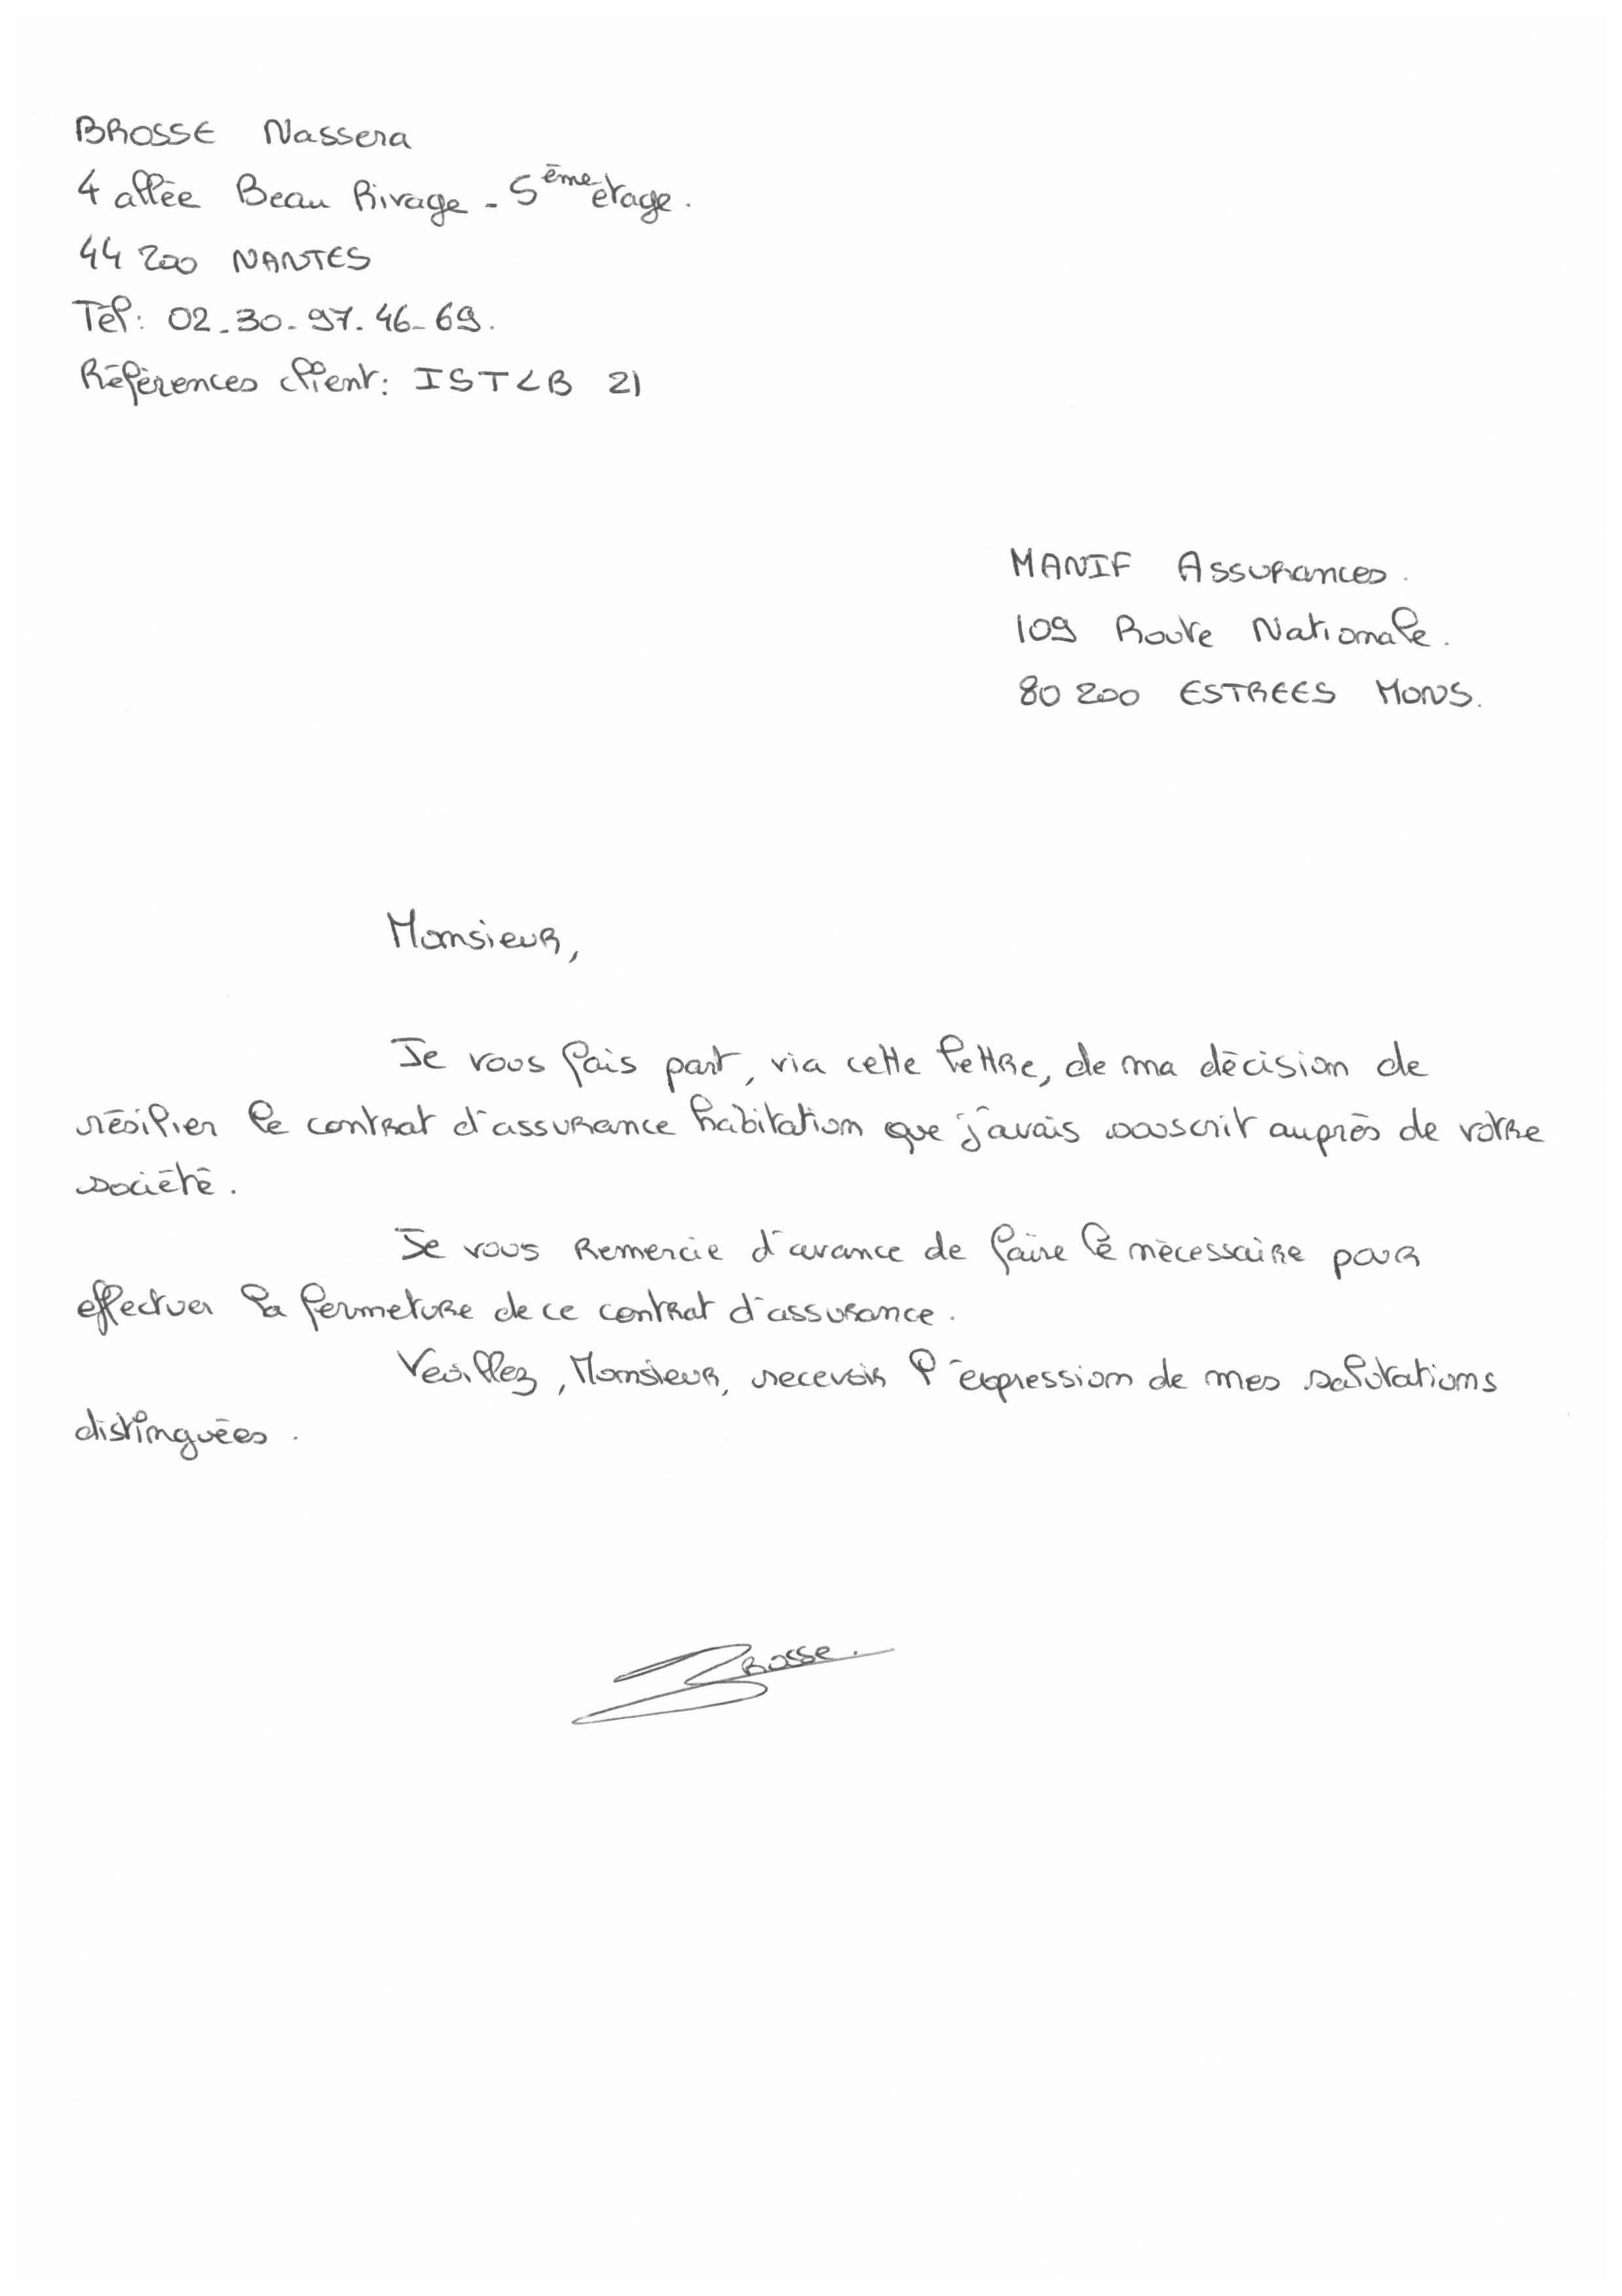 BROSSE Nassera
4 allée Beau Rivage - 5ème étage.
44 200 NANTES
Tél: 02_30-97.46-69.
Références client: ISTLB 21
MANIF Assurances.
109 Route Nationale.
80 200 ESTREES MONS.
Monsieur,
Je vous fais part, via cette lettre, de ma décision de
résilier le contrat d'assurance habitation que j'avais souscrit auprès de votre
société.
Je vous remercie d'avance de faire le nécessaire pour
effectuer la fermeture de ce contrat d'assurance.
Veuillez, Monsieur, recevoir l'expression de mes salutations
distinguées.
Brosse.